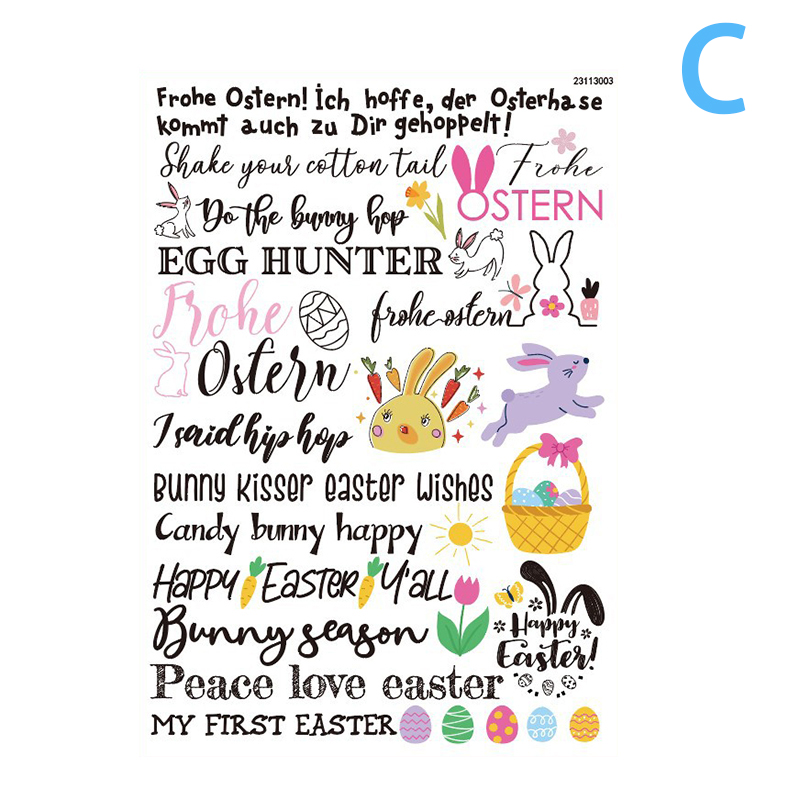 C
23113003
Frohe Ostern! Ich hoffe, der Osterhase
kommt auch zu Dir gehoppelt!
Shake your cotton tail
Frohe
OSTERN
Do the bunny hop
EGG HUNTER
Frohe
Ostern
frohe ostern
I said hip hop
Bunny Kisser easter wishes
Candy bunny happy
HAPPY EASTER Y'ALL
Bunny season
Happy
Easter!
Peace love easter
MY FIRST EASTER